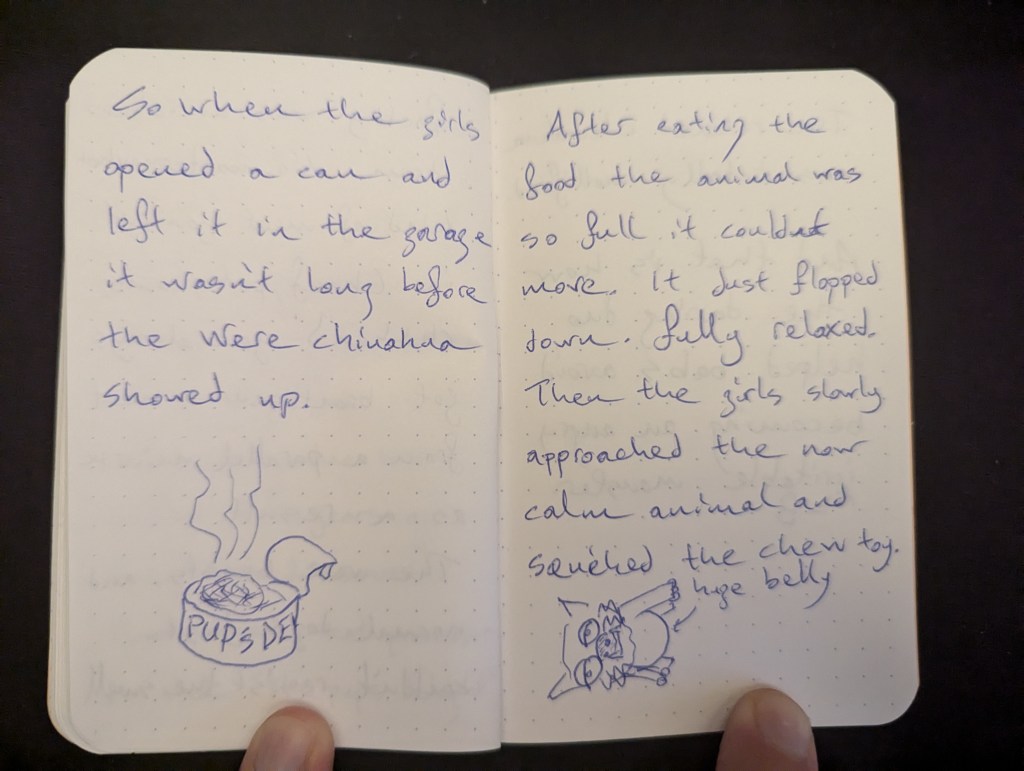 So when the girls
opened a can and
left it in the garage
it wasn't long before
the were chihuahua
showed up.
PUPS DE
After eating the
food the animal was
so full it couldnt
move. It just flopped
down. fully relaxed.
Then the girls slowly
approached the now
calm animal and
squeked the chew toy.
huge belly